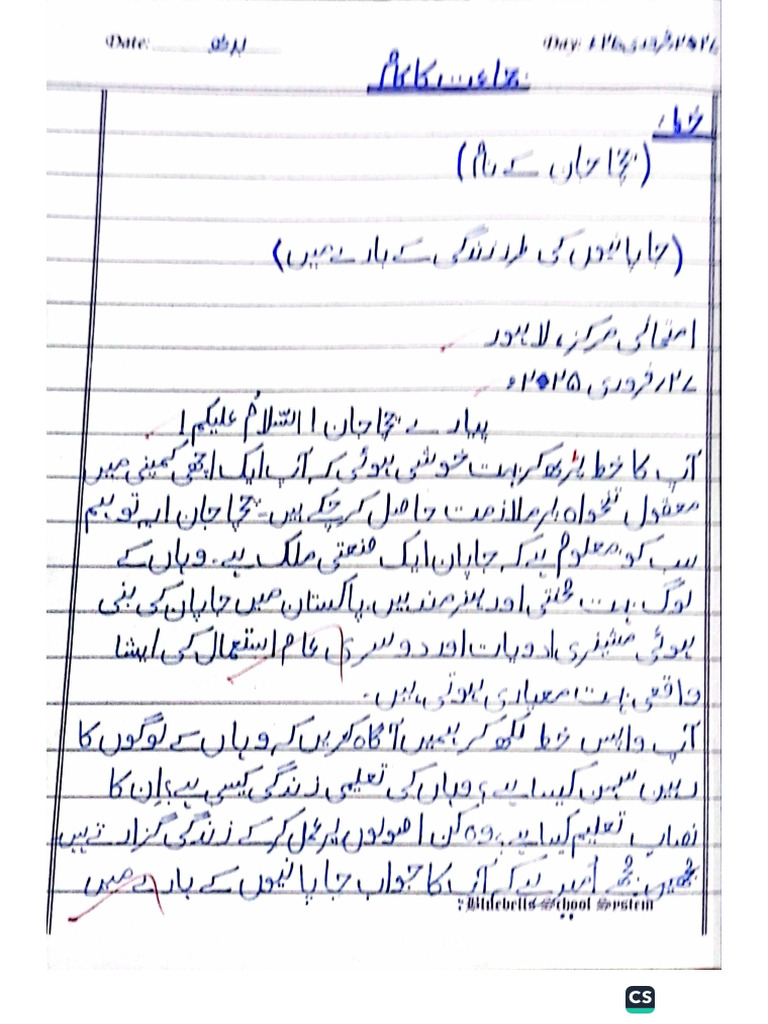 Date: بدھ Day: ۲۶ فروری ۲۰۲۵ء
جماعت کا کام
خط:
(چچا جان کے نام)
(جاپانیوں کی طرز زندگی کے بارے میں)
امتحانی مرکز، لاہور
۲۷ فروری ۲۰۲۵ء
پیارے چچا جان! السّلامُ علیکم!
آپ کا خط پڑھ کر بہت خوشی ہوئی کہ آپ ایک اچھی کمپنی میں
معقول تنخواہ پر ملازمت حاصل کر چکے ہیں۔ چچا جان! یہ تو ہم
سب کو معلوم ہے کہ جاپان ایک صنعتی ملک ہے۔ وہاں کے
لوگ بہت محنتی اور ہنرمند ہیں۔ پاکستان میں جاپان کی بنی
ہوئی مشینری، ادویات اور دوسری عام استعمال کی ایشا
واقعی بہت معیاری ہوتی ہیں۔
آپ واپس خط لکھ کر ہمیں آگاہ کریں کہ وہاں کے لوگوں کا
رہین سہن کیسا ہے؟ وہاں کی تعلیمی زندگی کیسی ہے؟ اِن کا
نصاب تعلیم کیسا ہے؟ وہ کن اصولوں پر عمل کر کے زندگی گزارتے ہیں
مجھے اُمید ہے کہ آپ کا جواب جاپانیوں کے بارے میں
Bluebells School System
CS